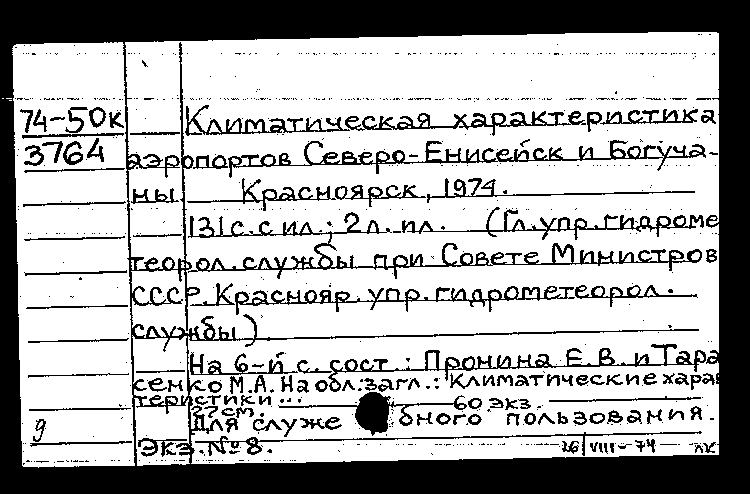 74-50к Климатическая характеристика
3764 аэропортов Северо-Енисейск и Богуча-
ны Красноярск, 1974.
131 с. с ил.; 2 л. ил. (Гл. упр. гидроме
теорол. службы при Совете Министров
СССР. Краснояр. упр. гидрометеорол.
службы)
На 6-й с. сост.: Пронина Е.В. и Тара
сенко М.А. На обл. загл.: Климатические харак
теристики...
27 см. 60 экз.
Для служебного пользования.
g
Экз. № 8. 26/VIII-74